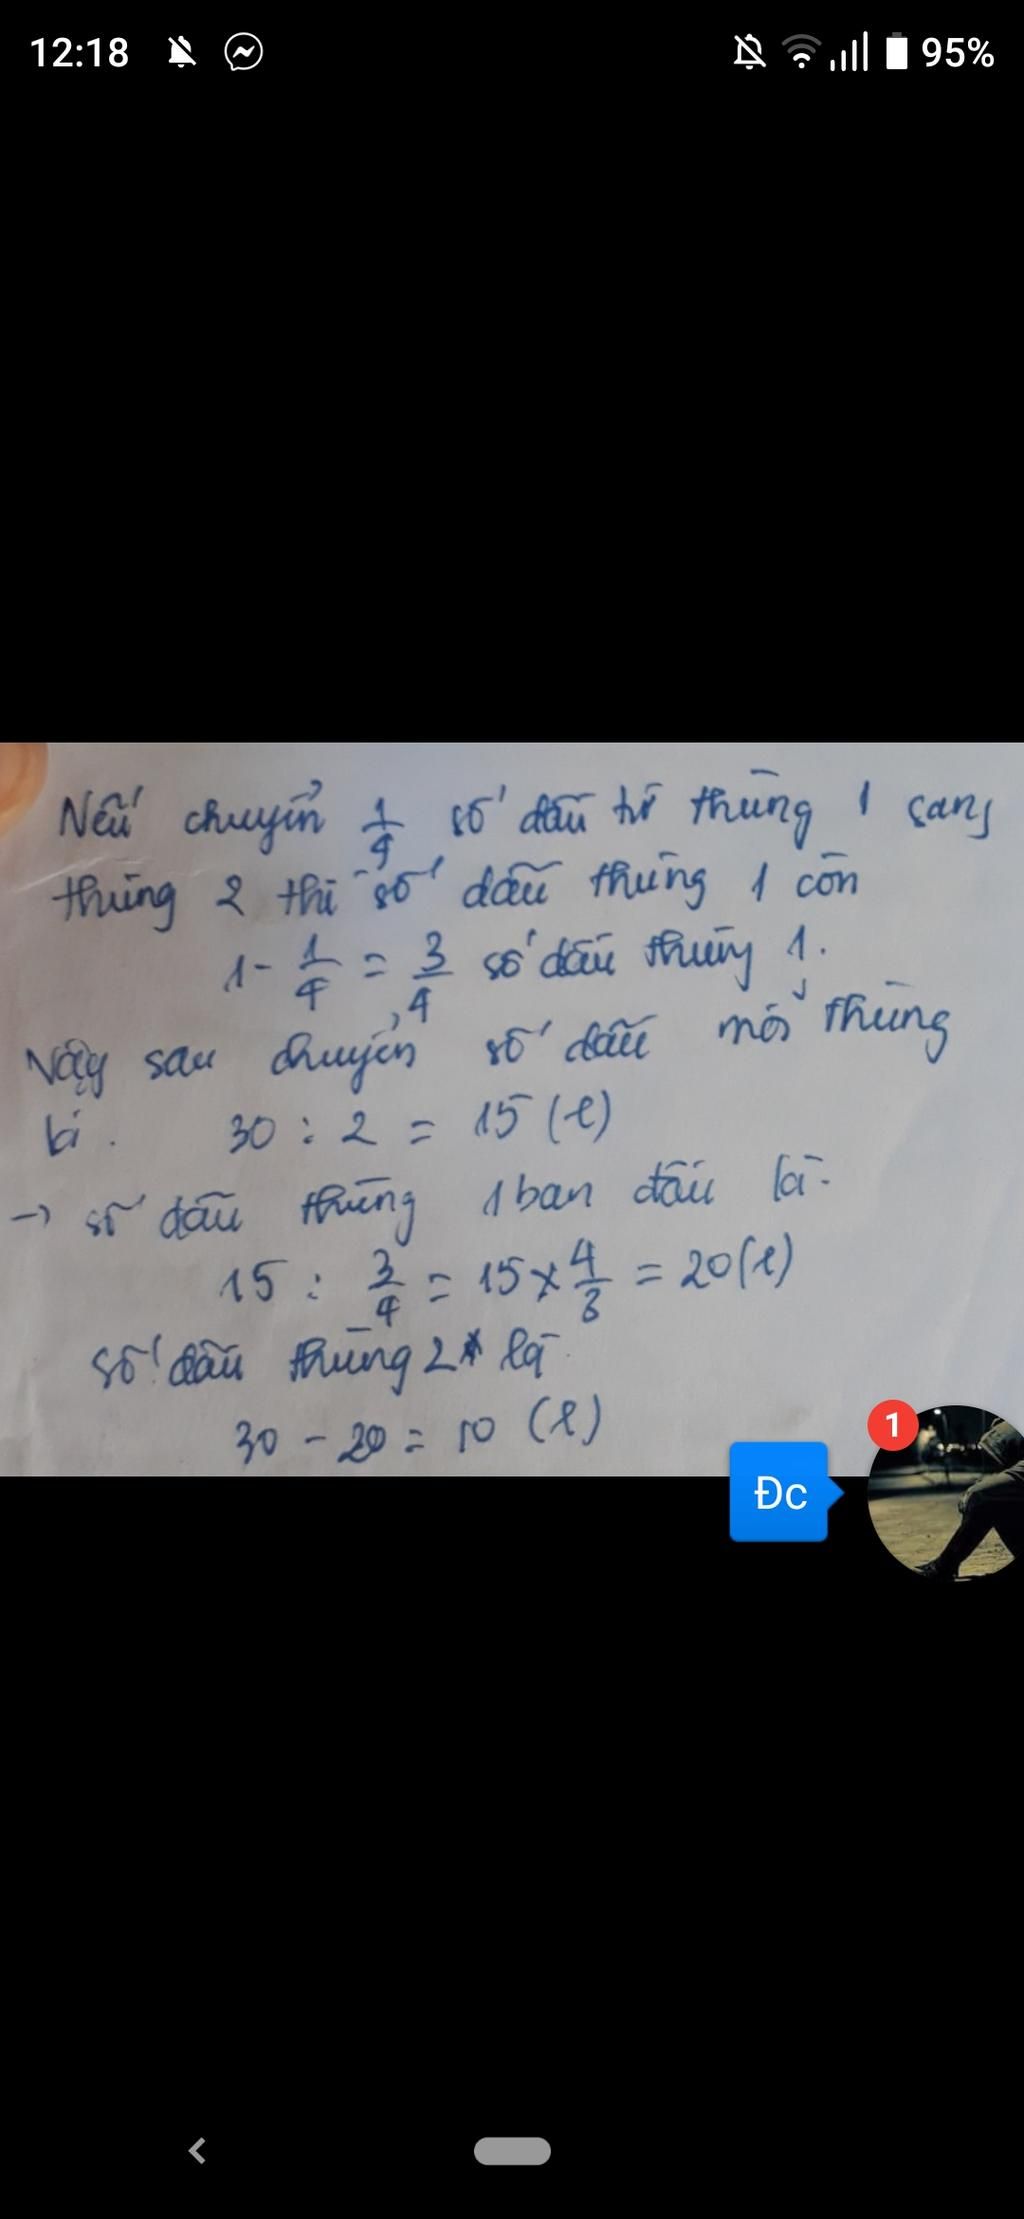 12:18
95%
Nếu chuyển 1/4 số dầu từ thùng 1 sang
thùng 2 thì số dầu thùng 1 còn
1 - 1/4 = 3/4 số dầu thùng 1.
Vậy sau chuyển số dầu mỗi thùng
là. 30 : 2 = 15 (l)
→ số dầu thùng 1 ban đầu là.
15 : 3/4 = 15 x 4/3 = 20 (l)
số dầu thùng 2 là
30 - 20 = 10 (l)
1
Đc